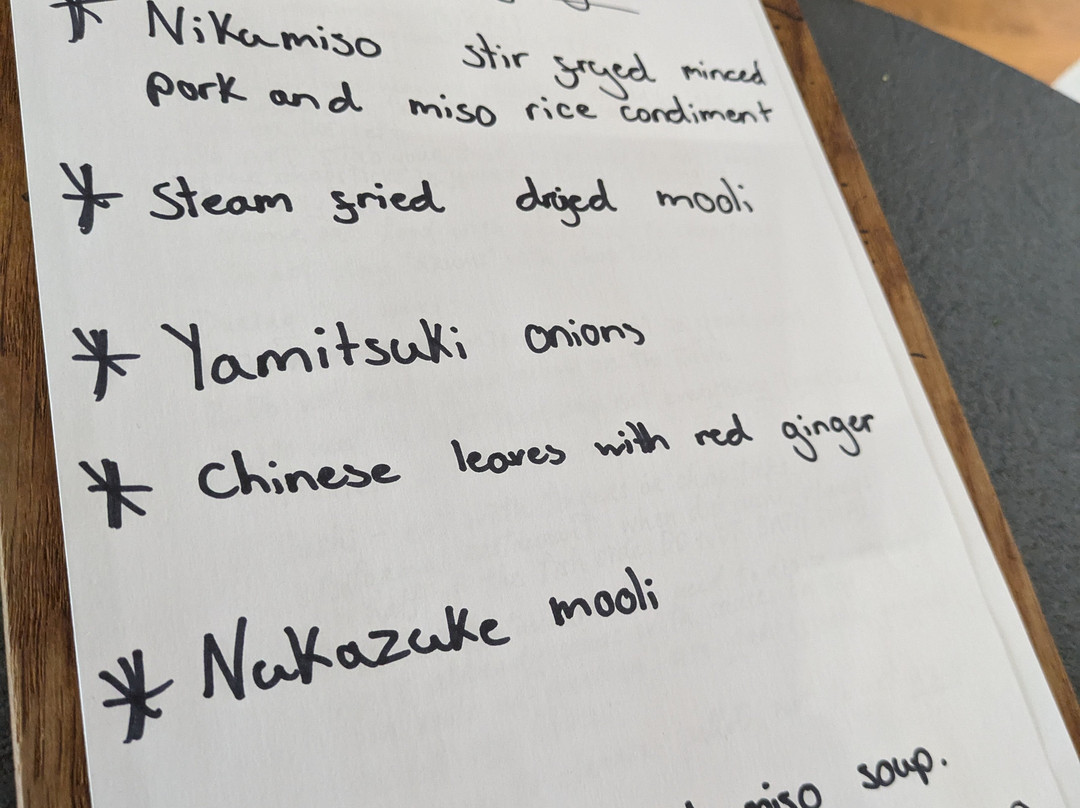 * Nikamiso stir fryed minced
pork and miso rice condiment
* Steam fried dryed mooli
* Yamitsuki onions
* Chinese leaves with red ginger
* Nukazuke mooli
miso soup.